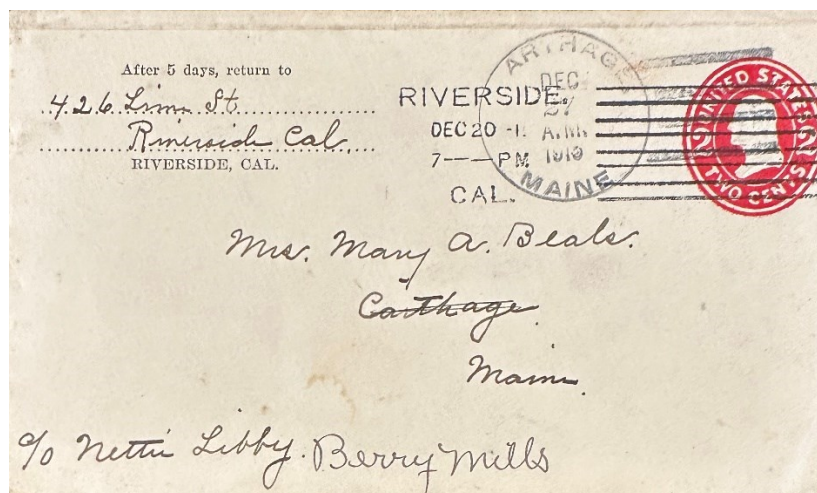 After 5 days, return to
426 Lime St
Riverside Cal.
RIVERSIDE, CAL.
RIVERSIDE,
DEC 20
7—PM
CAL.
ARTHAGE
DEC
27
A.M.
1919
MAINE
UNITED STATES
TWO CENTS
Mrs. Mary A. Beals.
Carthage
Maine
c/o Nettie Libby. Berry Mills